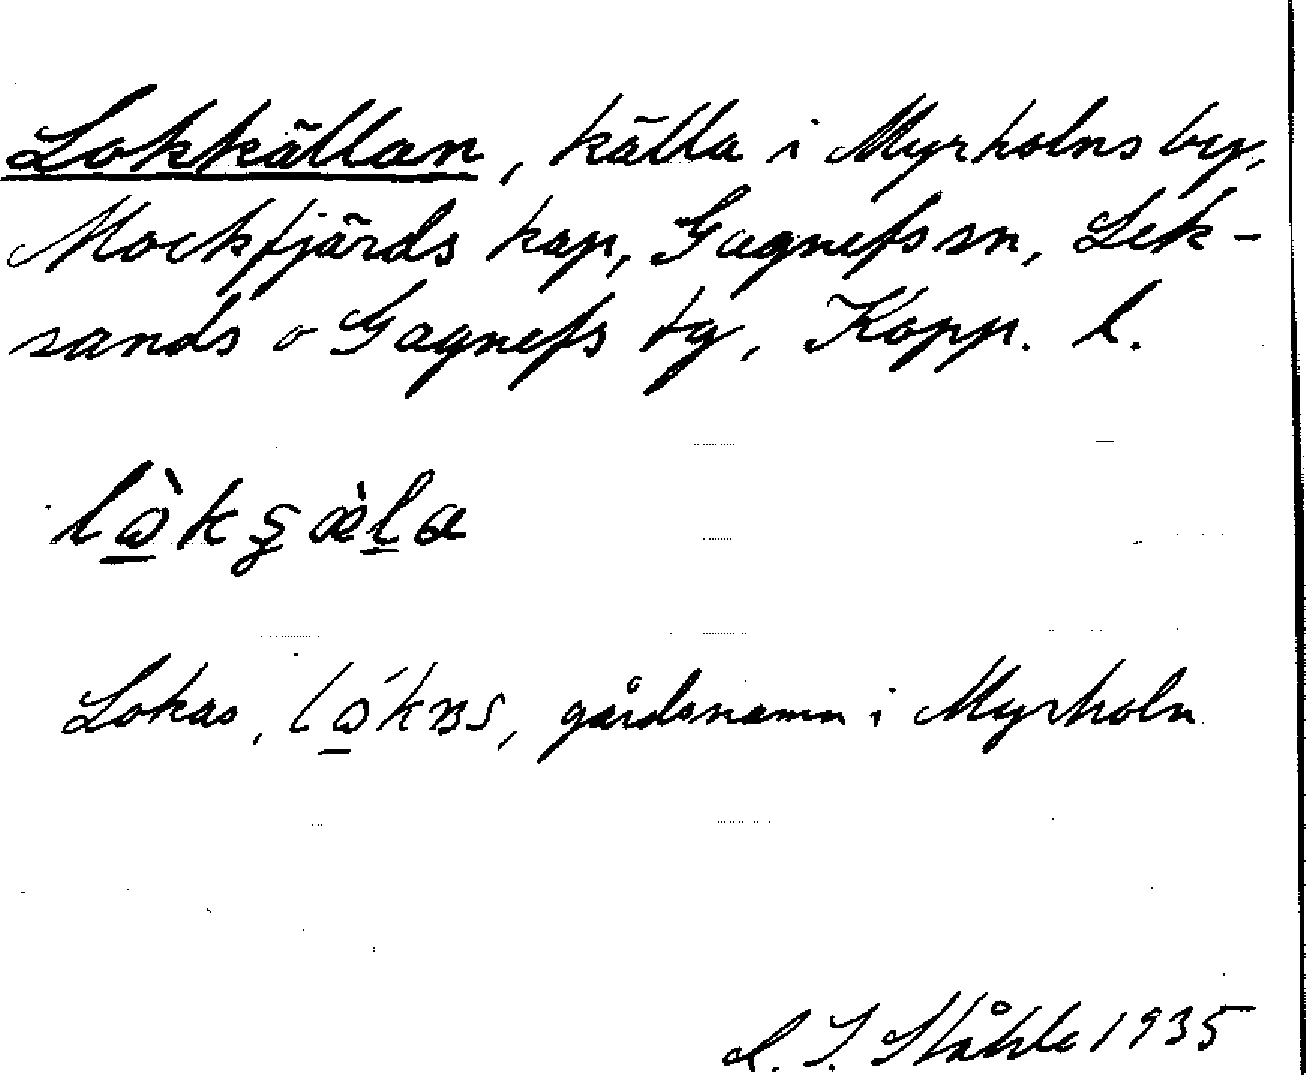 Lokkällan, källa i Myrholns by,
Mockfjärds kap, Gagnefs sn, Lek-
sands o Gagnefs tg, Kopp. l.
Lokas, gårdsnamn i Myrholn
C. I. Ståhle 1935